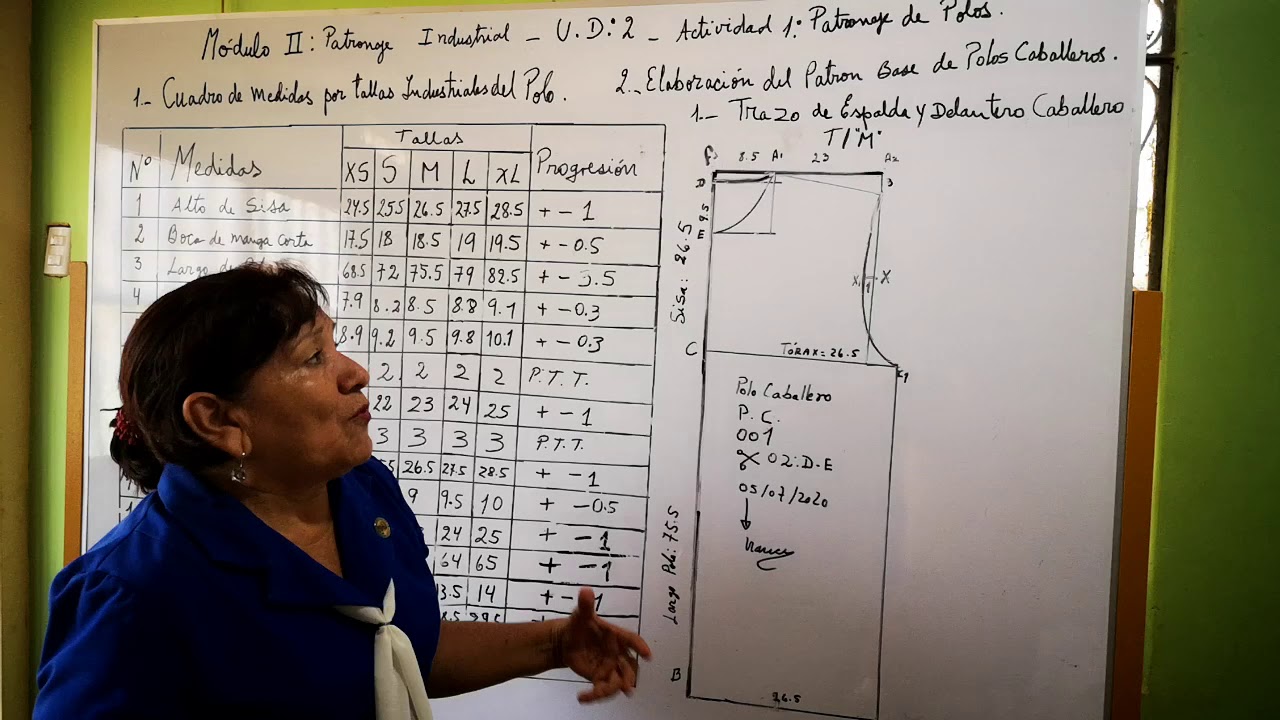 Módulo II: Patronaje Industrial - U.D: 2 - Actividad 1: Patronaje de Polos.
1.- Cuadro de Medidas por tallas Industriales del Polo.
2.- Elaboración del Patron Base de Polos Caballeros.
1.- Trazo de Espalda y Delantero Caballero
T/"M"
Nº Medidas Tallas Progresión
XS S M L XL
1 Alto de Sisa 24.5 25.5 26.5 27.5 28.5 + - 1
2 Boca de manga corta 17.5 18 18.5 19 19.5 + - 0.5
3 Largo de 68.5 72 75.5 79 82.5 + - 3.5
4 7.9 8.2 8.5 8.8 9.1 + - 0.3
8.9 9.2 9.5 9.8 10.1 + - 0.3
2 2 2 2 P.T.T.
22 23 24 25 + - 1
3 3 3 3 P.T.T.
26.5 27.5 28.5 + - 1
9 9.5 10 + - 0.5
24 25 + - 1
64 65 + - 1
13.5 14 + - 1
8.5 A1 23 A2
D
E 9.5
Sisa: 26.5
X1 1 X
C TÓRAX = 26.5
Polo Caballero
P.C.
001
02: D.E
05/07/2020
Largo Polo: 75.5
B 26.5